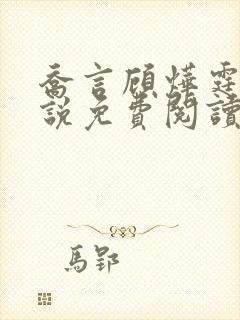 喬言顧燁霆
說免費閱讀
馬郢